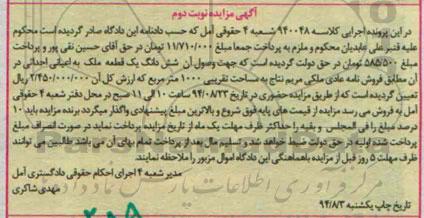 آگهی مزایده نوبت دوم
در این پرونده اجرایی کلاسه ۹۴۰۰۴۸ شعبه ۴ حقوقی آمل که حسب دادنامه این دادگاه صادر گردیده است محکوم
علیه قنبر علی عابدیان محکوم و ملزم به پرداخت جمعا مبلغ ۱۱/۷۱۰/۰۰۰ تومان در حق آقای حسین نقی پور و پرداخت
مبلغ ۵۸۵۵۰۰ تومان در حق دولت گردیده است که جهت وصول آن شش دانگ یک قطعه ملک به اعیانی احداثی در
آن مطابق فروش نامه عادی ملکی مریم نتاج به مساحت تقریبی ۱۰۰۰ متر مربع که ارزش کل آن ۲/۴۵۰/۰۰۰/۰۰۰ ریال
تعیین گردیده است که از طریق مزایده حضوری در تاریخ ۹۴/۰۸/۲۳ ساعت ۱۰ الی ۱۱ صبح در محل دفتر شعبه ۴ حقوقی
آمل به فروش می رسد مزایده از قیمت های پایه فوق شروع و بالاترین مبلغ پیشنهادی واگذار میگردد برنده مزایده باید ۱۰
درصد مبلغ را فی المجلس و بقیه را حداکثر ظرف مهلت یک ماه از تاریخ مزایده پرداخت نماید در صورت انصراف مبلغ
پرداخت شده اولیه در حق دولت ضبط خواهد شد و تسلیم مال بعد از پرداخت تمام بهای آن می باشد طالبین می توانند
ظرف مهلت ۵ روز قبل از مزایده باهماهنگی این دادگاه اموال مزبور را ملاحظه نمایند.
مدیر شعبه ۴ اجرای احکام حقوقی دادگستری آمل
مهدی شاکری
تاریخ چاپ یکشنبه ۹۴/۸/۳